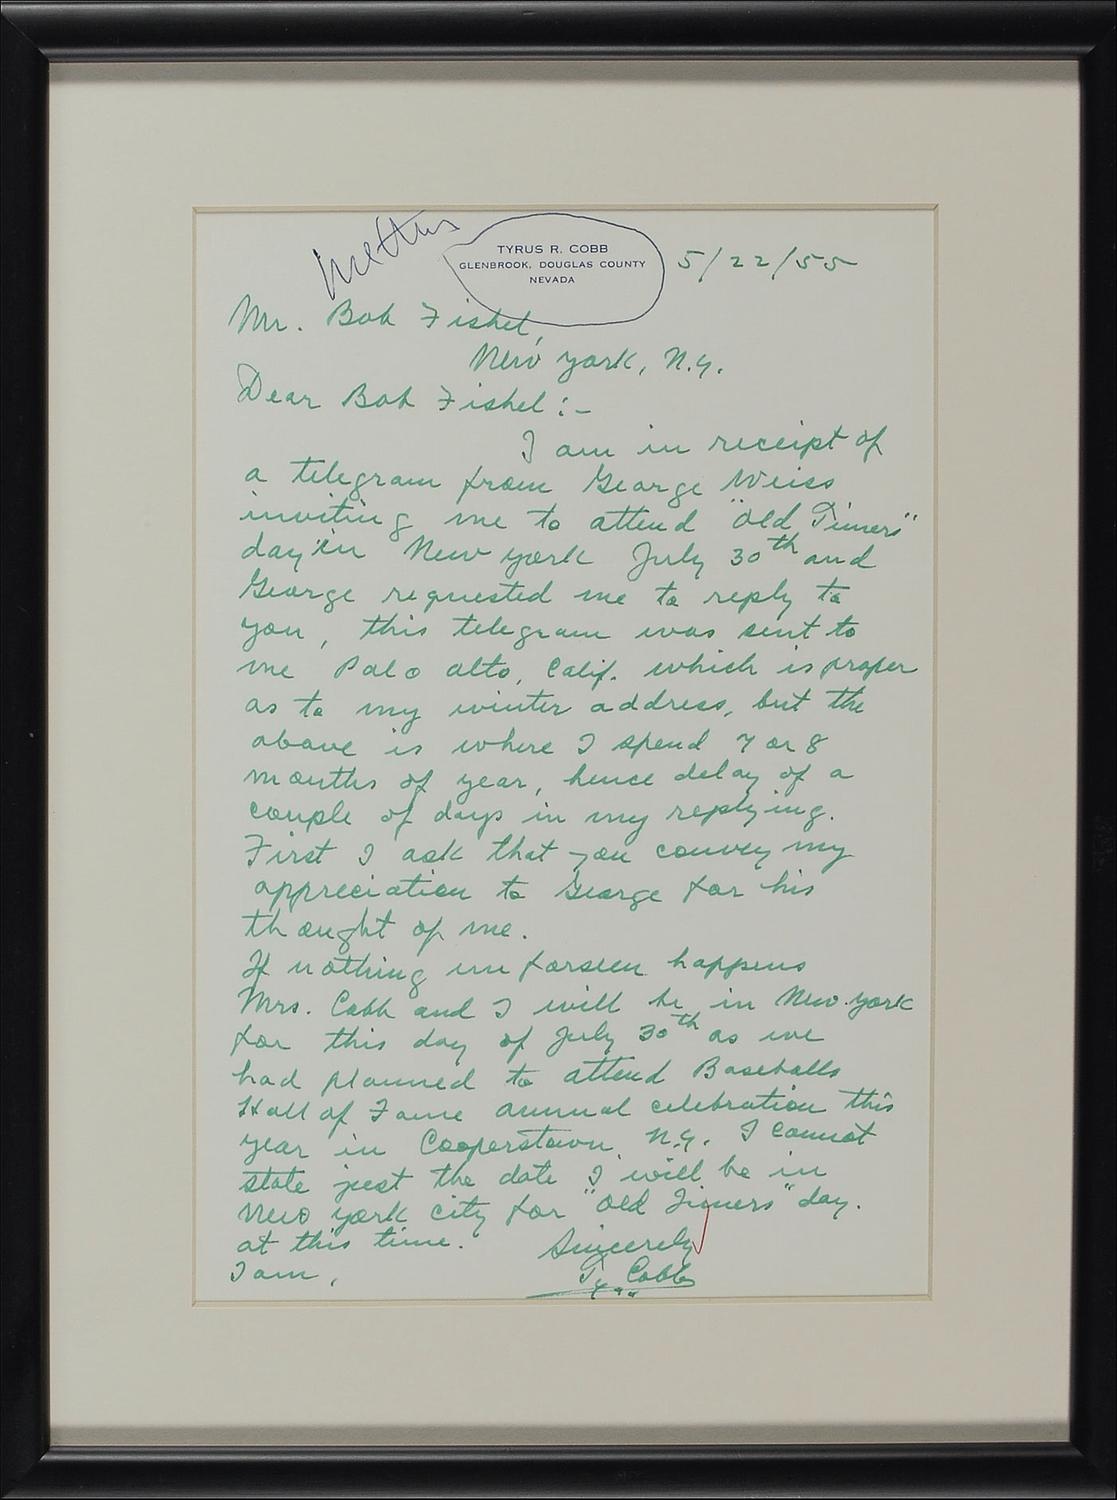 TYRUS R. COBB
GLENBROOK, DOUGLAS COUNTY
NEVADA
5/22/55
Mr. Bob Fishel,
New York, N.Y.
Dear Bob Fishel:-
I am in receipt of
a telegram from George Weiss
inviting me to attend "Old Timers"
day" in New York July 30th and
George requested me to reply to
you, this telegram was sent to
me Palo alto, Calif. which is proper
as to my winter address, but the
above is where I spend 7 or 8
months of year, hence delay of a
couple of days in my replying.
First I ask that you convey my
appreciation to George for his
thought of me.
If nothing un forseen happens
Mrs. Cobb and I will be in New York
for this day of July 30th as we
had planned to attend Baseballs
Hall of Fame annual celebration this
year in Cooperstown, N.Y. I cannot
state just the date I will be in
New York city for "Old Timers" day.
at this time.
Sincerely
I am,
Ty Cobb